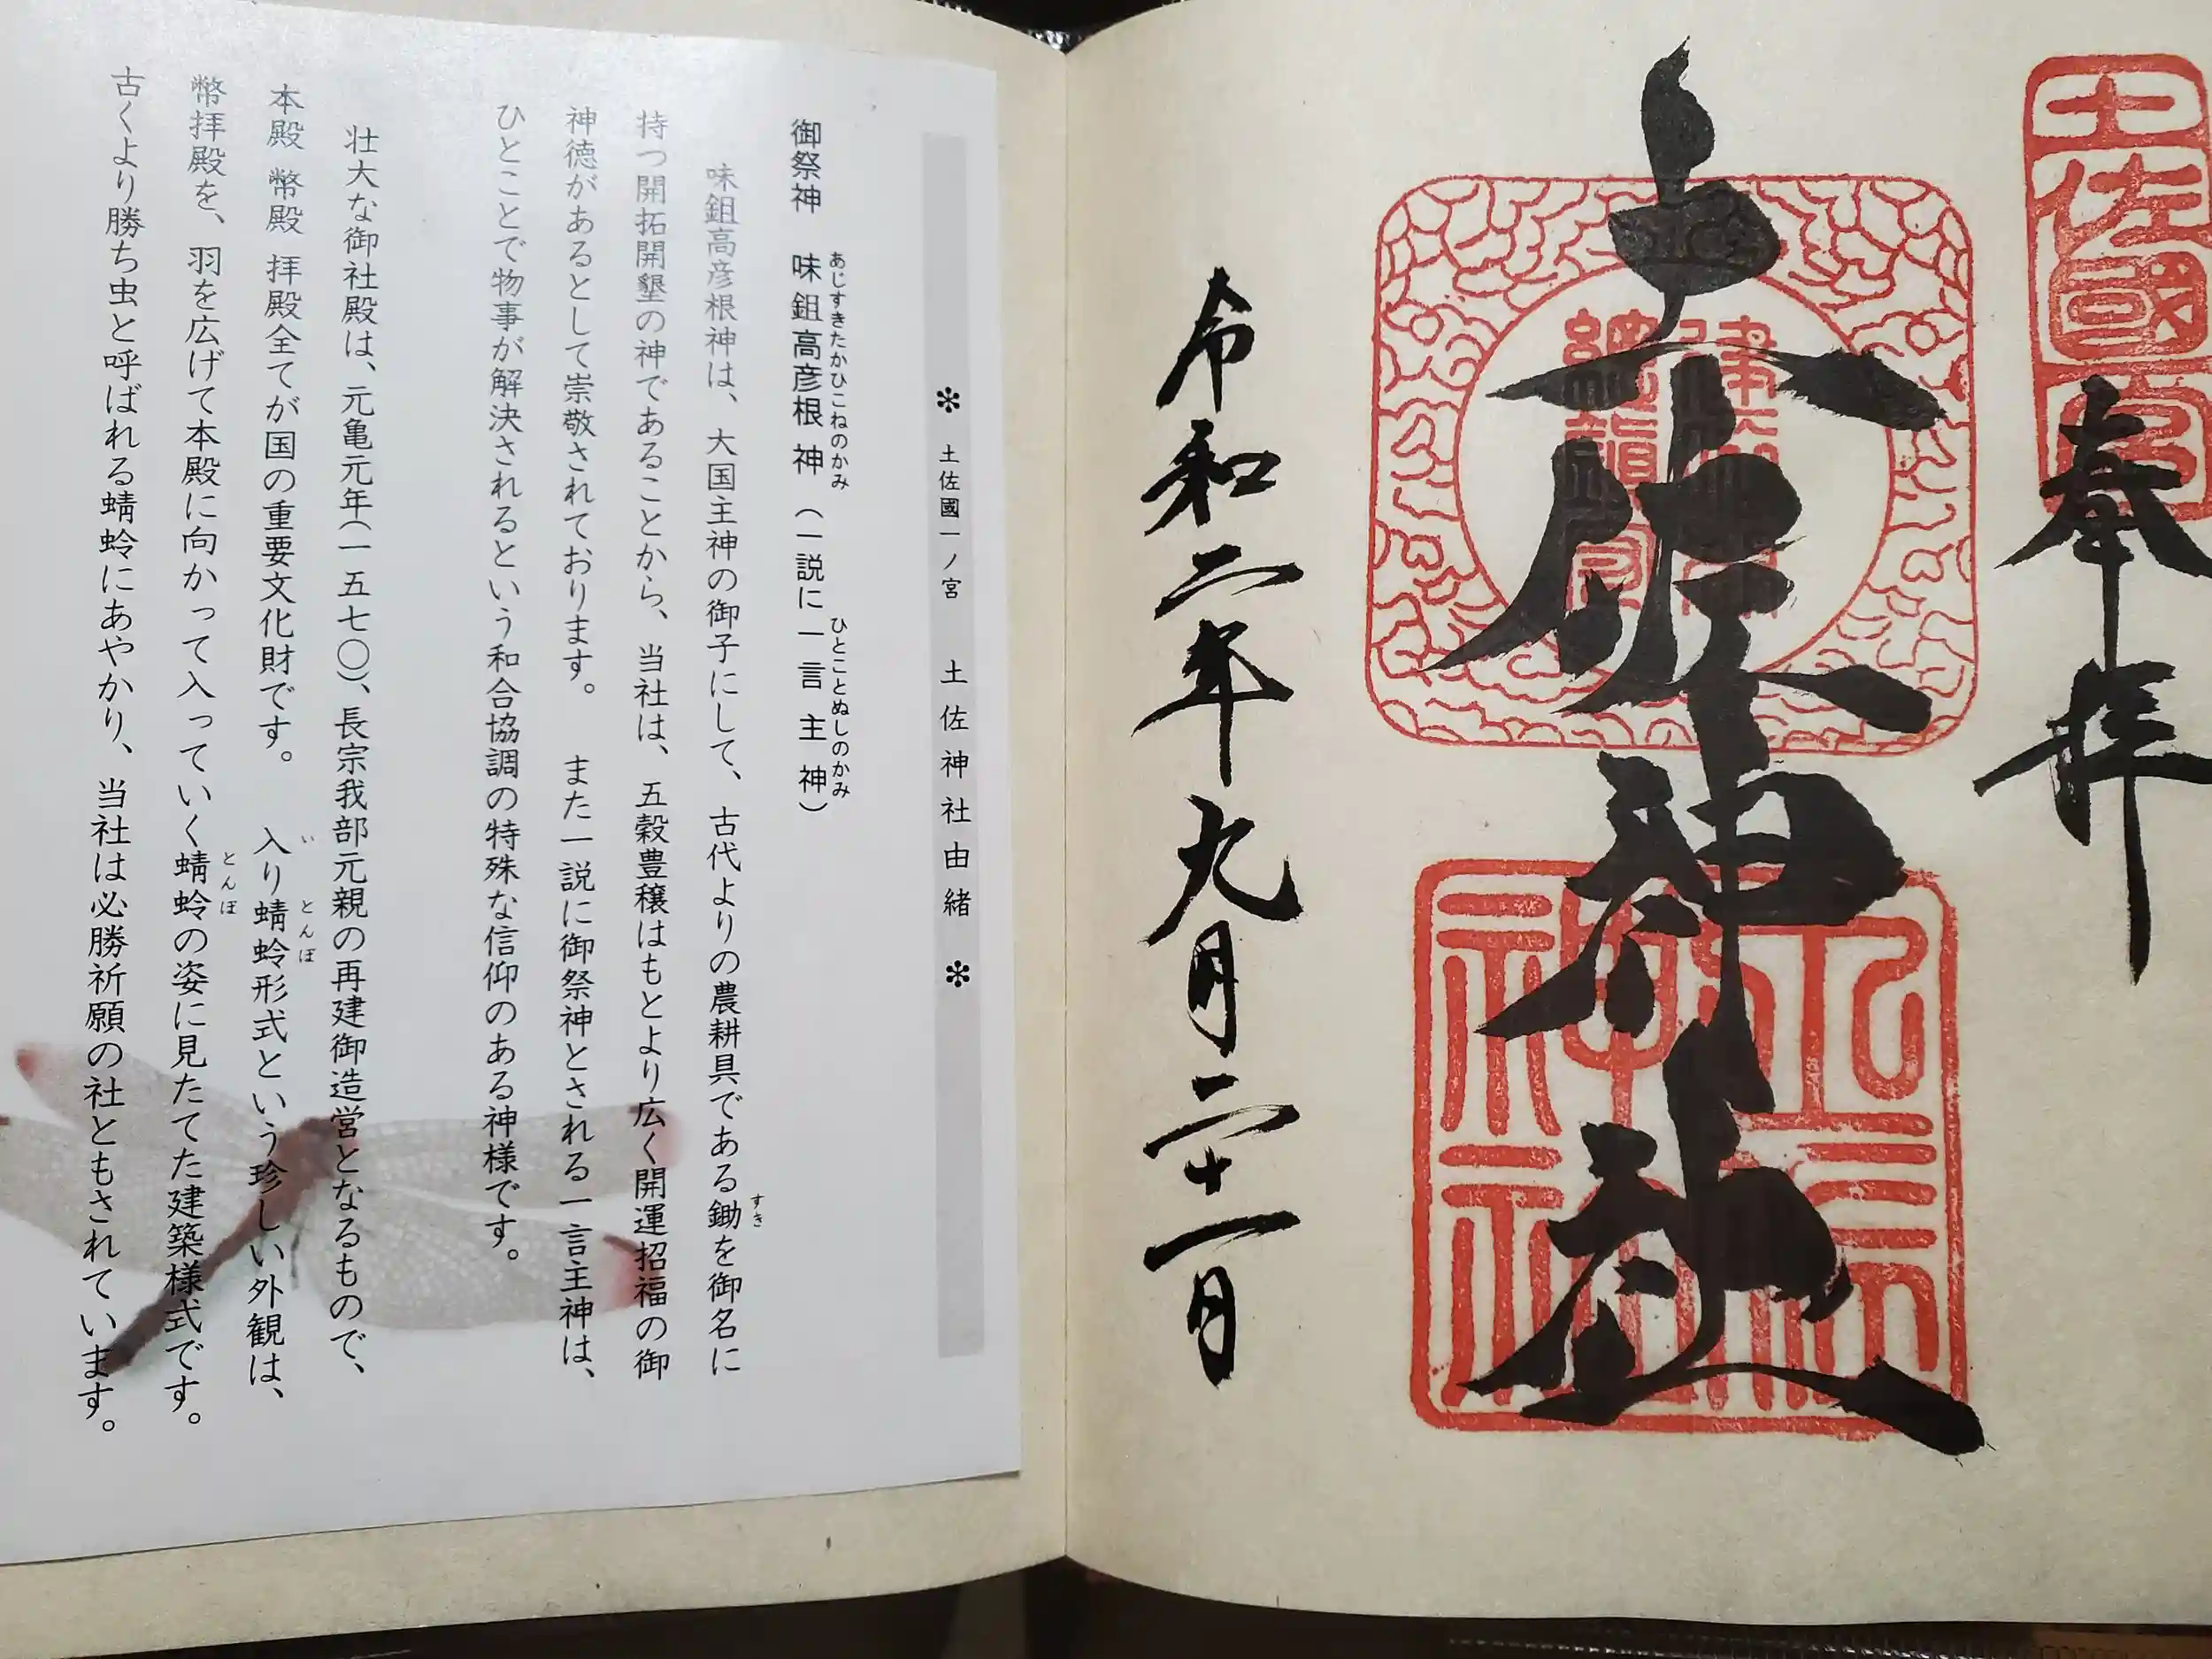 土佐國一宮
奉拝
土佐神社
令和二年九月二十一日
❇ 土佐國一ノ宮 土佐神社由緒 ❇
御祭神 味鉏高彦根神 (一説に一言主神)
あじすきたかひこねのかみ
ひとことぬしのかみ
味鉏高彦根神は、大国主神の御子にして、古代よりの農耕具である鋤を御名に
すき
持つ開拓開墾の神であることから、当社は、五穀豊穣はもとより広く開運招福の御
神徳があるとして崇敬されております。 また一説に御祭神とされる一言主神は、
ひとことで物事が解決されるという和合協調の特殊な信仰のある神様です。
壮大な御社殿は、元亀元年(一五七〇)、長宗我部元親の再建御造営となるもので、
本殿 幣殿 拝殿全てが国の重要文化財です。 入り蜻蛉形式という珍しい外観は、
い とんぼ
幣拝殿を、羽を広げて本殿に向かって入っていく蜻蛉の姿に見たてた建築様式です。
とんぼ
古くより勝ち虫と呼ばれる蜻蛉にあやかり、当社は必勝祈願の社ともされています。